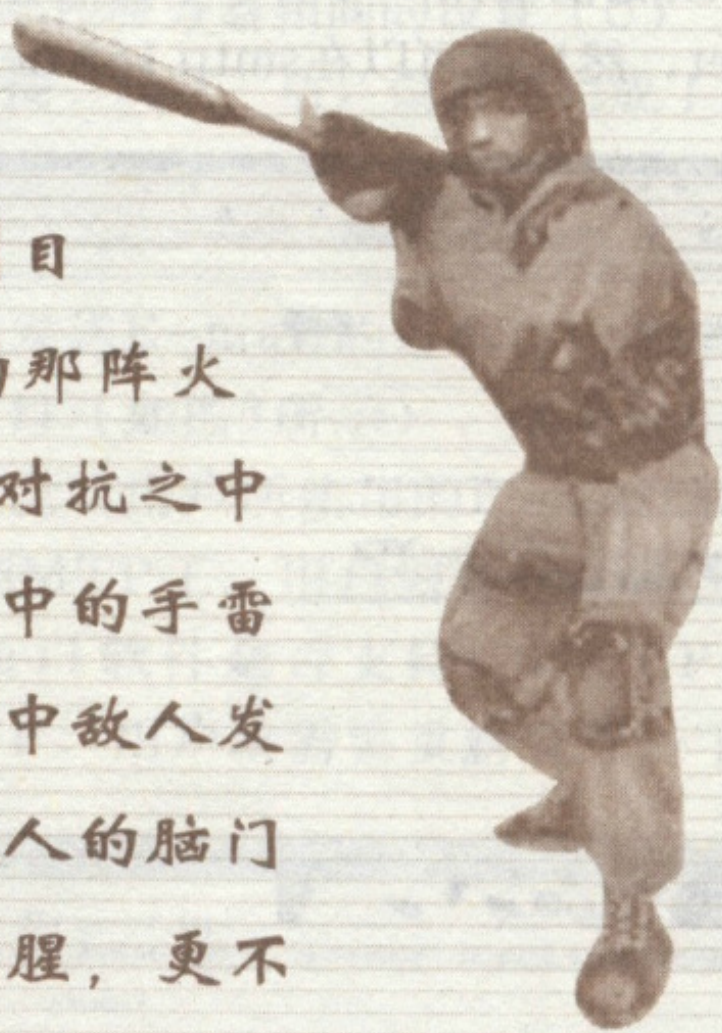 目
那阵火
对抗之中
中的手雷
中敌人发
人的脑门
腥，更不